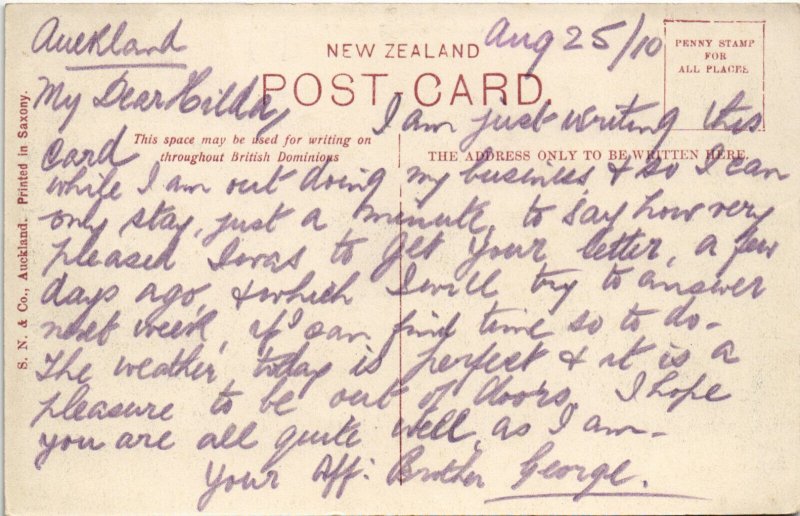 Auckland
Aug 25/10
NEW ZEALAND
POST-CARD.
PENNY STAMP
FOR
ALL PLACES.
My Dear Hilda,
I am just writing this
card
This space may be used for writing on
throughout British Dominions
THE ADDRESS ONLY TO BE WRITTEN HERE.
while I am out doing my business, & so I can
only stay, just a minute, to say how very
pleased I was to get your letter, a few
days ago, & which I will try to answer
next week, if I can find time so to do-
The weather, today is perfect & it is a
pleasure to be out of doors. I hope
you are all quite well, as I am-
Your Aff: Brother George.
S. N. & Co., Auckland. Printed in Saxony.